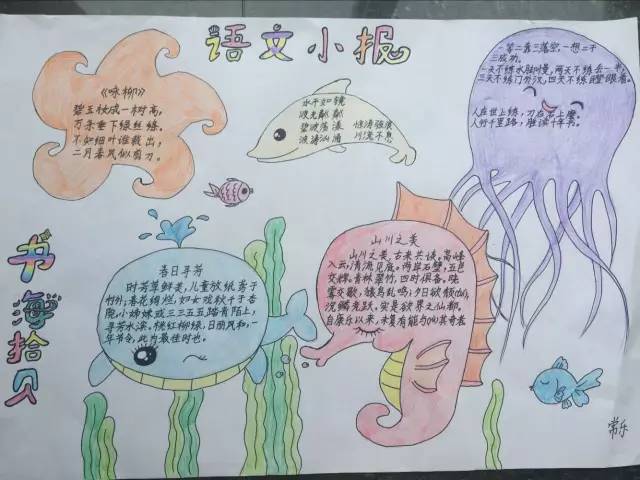 语文小报
《咏柳》
碧玉妆成一树高,
万条垂下绿丝绦。
不知细叶谁裁出,
二月春风似剪刀。
水平如镜
波光粼粼
碧波荡漾 惊涛骇浪
波涛汹涌 川流不息
一等二靠三落空,一想二干
三成功。
一天不练手脚慢,两天不练丢一半,
三天不练门外汉,四天不练瞪眼看。
人在世上练,刀在石上磨。
人行千里路,胜读十年书。
书海拾贝
春日寻芳
时芳草鲜美,儿童放纸鸢于
村外,春花绚烂,如
小姊妹或三三五五踏青陌上,
寻芳水滨。桃红柳绿,日丽风和,一
年节令,此为最佳时也。
山川之美
山川之美,古来共谈。高峰
入云,清流见底。两岸石壁,五色
交辉。青林翠竹,四时俱备。晓
夕日欲颓(tuí),
沉鳞竞跃,实是欲界之仙都。
自康乐以来,未复有能与(yù)其奇者
常乐